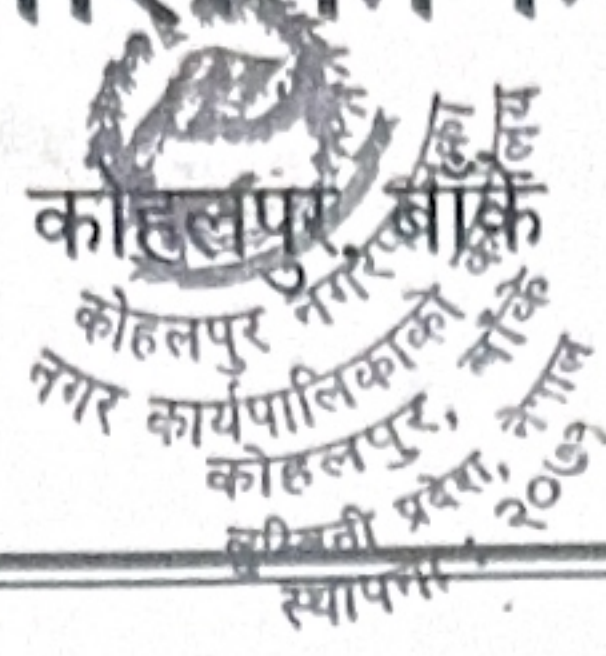 कोहलपुर, बाँके
कोहलपुर नगरपालिका
नगर कार्यपालिकाको कार्यालय
कोहलपुर, बाँके
लुम्बिनी प्रदेश, नेपाल
स्थापना : २०७२